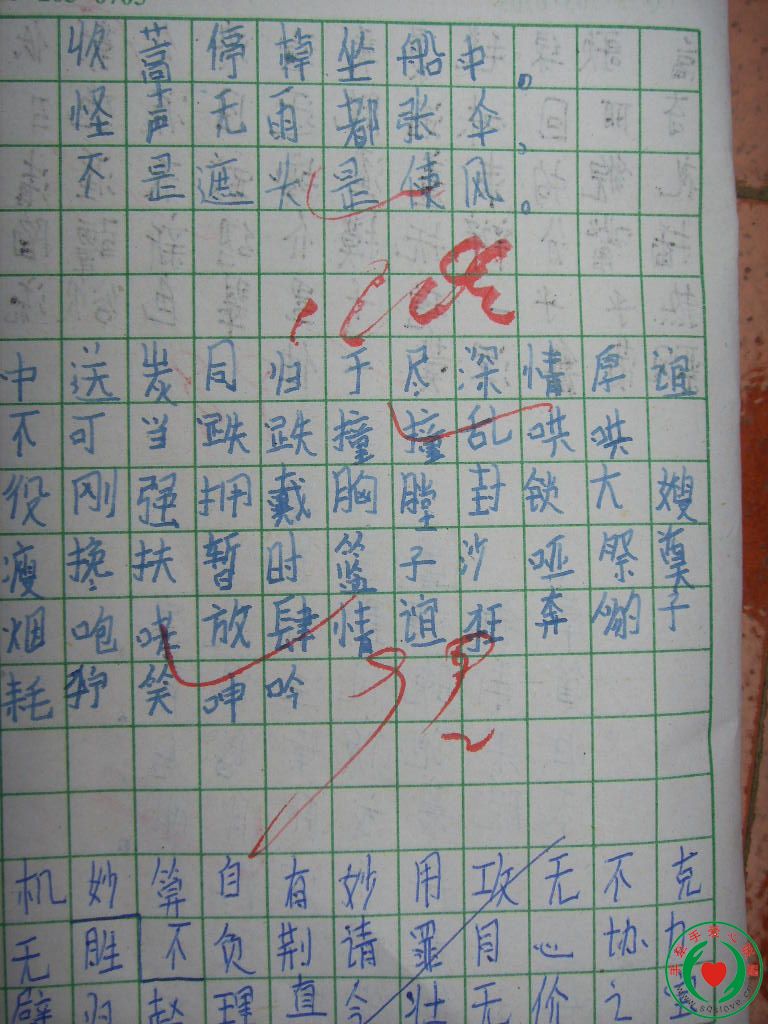 收蒿停棹坐船中。
怪声无雨都张伞，
不是遮头是使风。
中送炭同归于尽深情厚谊
不可当跌跌撞撞乱哄哄
役刚强拥戴胸膛封锁大嫂
瘦搀扶暂时篮子沙哑祭奠
烟咆哮放肆情谊狂奔 子
耗狞笑呻吟
机妙算自有妙用攻无不克
无胜不负荆请罪同心协力
璧归赵理直 壮无价之宝